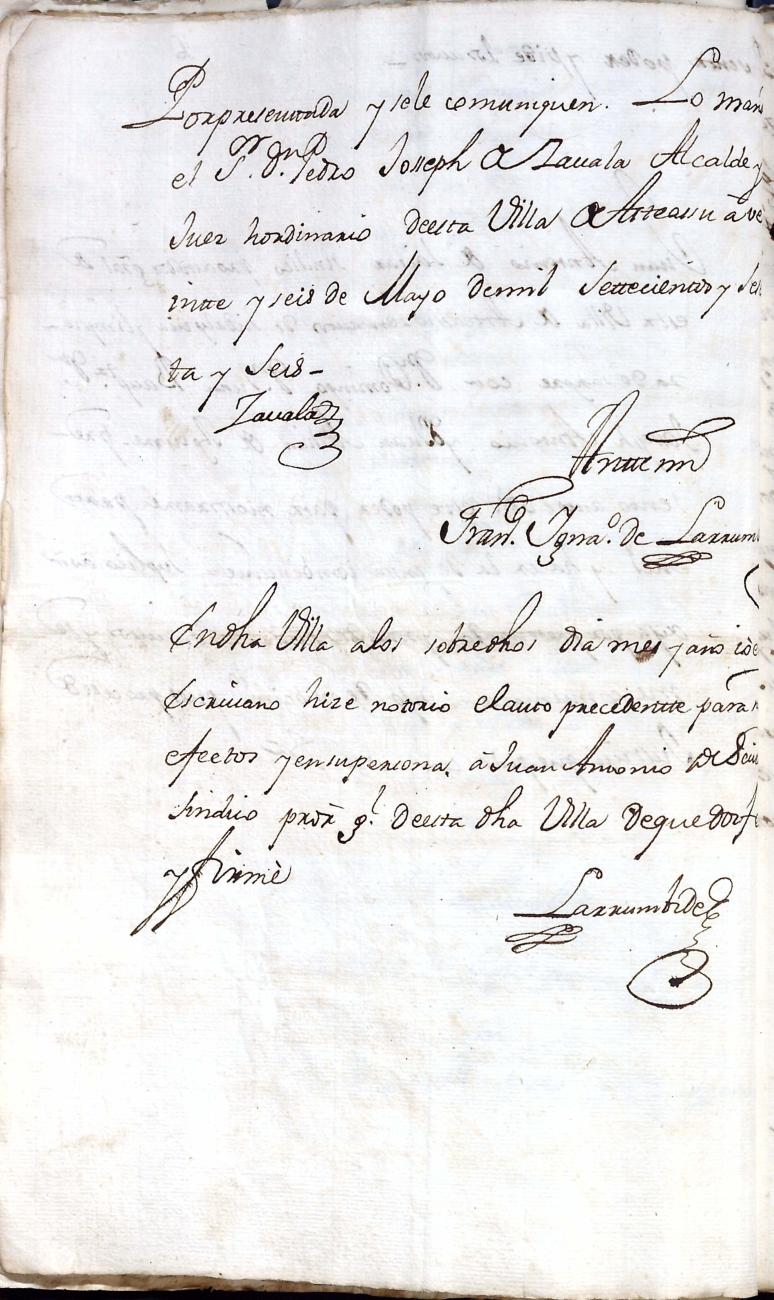 Por presentada y sele comuniquen. Lo man
el S.r d.n Pedro Joseph de Zavala Alcalde y
Juez hordinario deesta Villa de Atteassu â ve
intte y seis de Mayo demil Settecientos y Se
ta y Seis -
Zavala
Antte mi
Fran.co Ygna.o de Larrum
En dha Villa a los sobredhos dia mes y año
Escrivano hize notorio el auto precedentte para
efectos y en su persona, â Juan Antonio de
Sindico pror g.l deesta dha Villa de que doi f
y firmè
Larrumbide